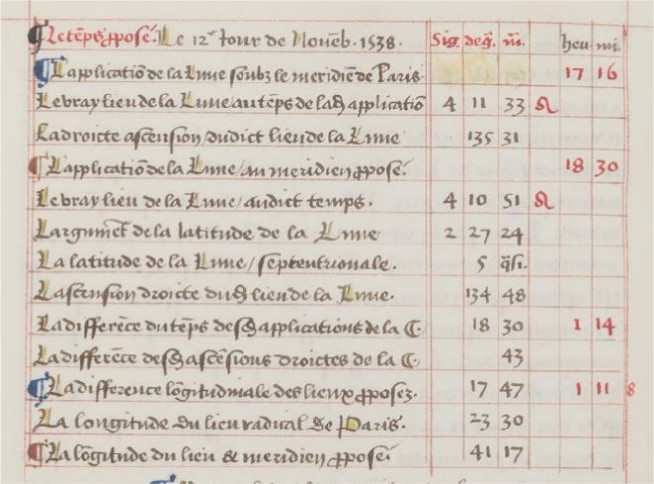 ¶ Le tēps ꝓposé. Le 12ᵉ Jour de Nouēb. 1538. Sig. deg̃. m̃. heu. mi.
¶ L'applicatiō de la Lune soubz le meridiē de Paris. 17 16
Le vray lieu de la Lune au tēps de lad applicatiō 4 11 33 ♌
La droicte ascension dudict lieu de la Lune 135 31
¶ L'applicatiō de la Lune / au meridien ꝓposé. 18 30
Le vray lieu de la Lune / audict temps. 4 10 51 ♌
L'argumēt de la latitude de la Lune 2 27 24
La latitude de la Lune / septentrionale. 5 q̃si.
L'ascension droicte dud lieu de la Lune. 134 48
La differēce du tēps desd applications de la ☾. 18 30 1 14
La differēce desd ascēsions droictes de la ☾. 43
¶ La difference lōgitudinale des lieux ꝓposez. 17 47 1 11 8
La longitude du lieu radical de Paris. 23 30
¶ La lōgitude du lieu & meridien ꝓposé. 41 17